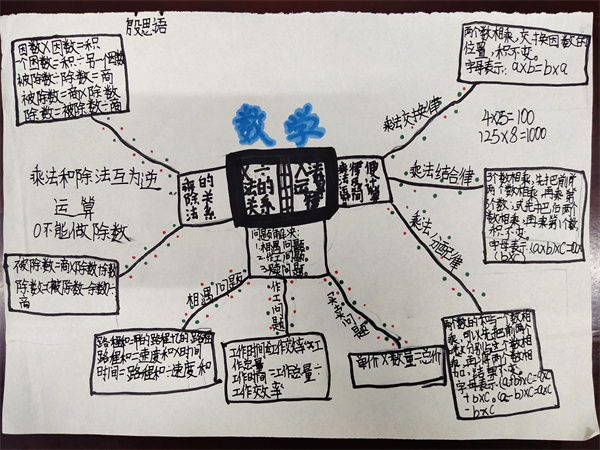 殷思语
因数×因数=积
一个因数=积÷另一个因数
被除数÷除数=商
被除数=商×除数
除数=被除数÷商
数学
两个数相乘,交换因数的
位置,积不变。
字母表示:a×b=b×a
乘法交换律
4×25=100
125×8=1000
乘法和除法互为逆
运算
0不能做除数
乘除法
的关系
×÷
法的
关系
乘法结合律
3个数相乘,先把前
两个数相乘,再乘第
积不变。
字母表示:(a×b)×c=a×
(b×c)
乘法分配律
问题解决:
1.相遇问题。
2.工作问题。
相遇问题
工作问题
买卖问题
被除数=商×除数+余数
除数=(被除数-余数)÷
商
路程和=速度和×时间
时间=路程和÷速度和
工作时间×工作效率=工
作总量
工作时间=工作总量÷
工作效率
单价×数量=总价
两个数的和与一个数相
乘,可以先把前两个
数分别与这个数相
乘,再把两个数相
加,结果不变。
字母表示(a+b)×c=a×c
+b×c。(a-b)×c=a×c
-b×c